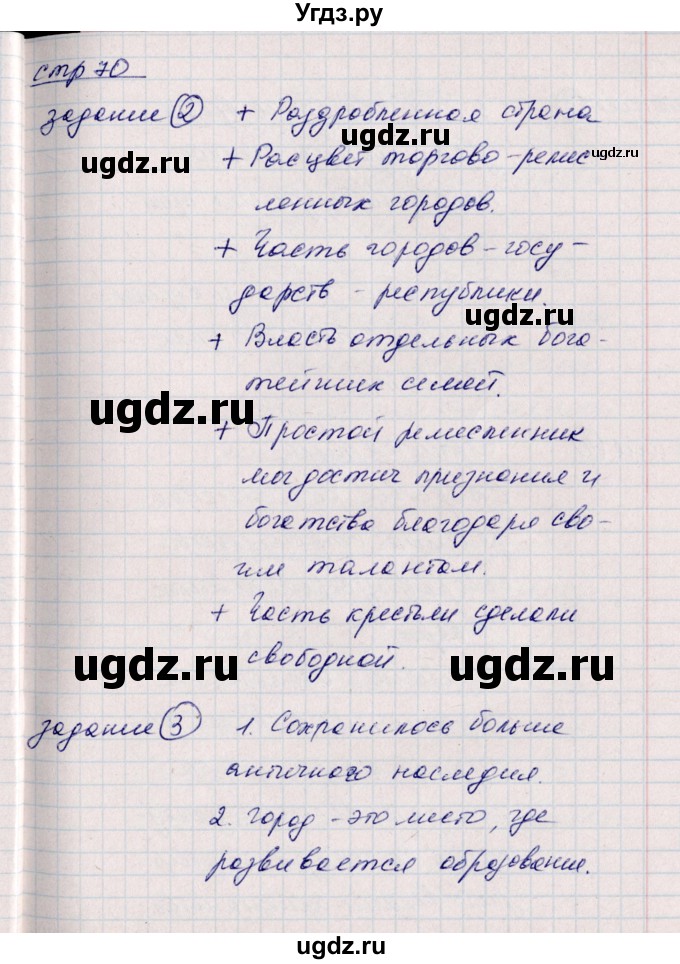 Угдз.ру
стр 70
задание 2 + Раздробленная страна
ugdz.ru ugdz.ru ugdz.ru
+ Расцвет торгово-ремес
ленных городов.
+ Часть городов-госу-
дарств - республики.
ugdz.ru
+ Власть отдельных бога-
тейших семей.
ugdz.ru
+ Простой ремесленник
мог достич признания и
богатства благодаря сво-
им талантам.
+ Часть крестьян сделали
свободной.
ugdz.ru ugdz.ru
задание 3 1. Сохранилось больше
античного наследия.
2. Город - это место, где
развивается образование.
ugdz.ru